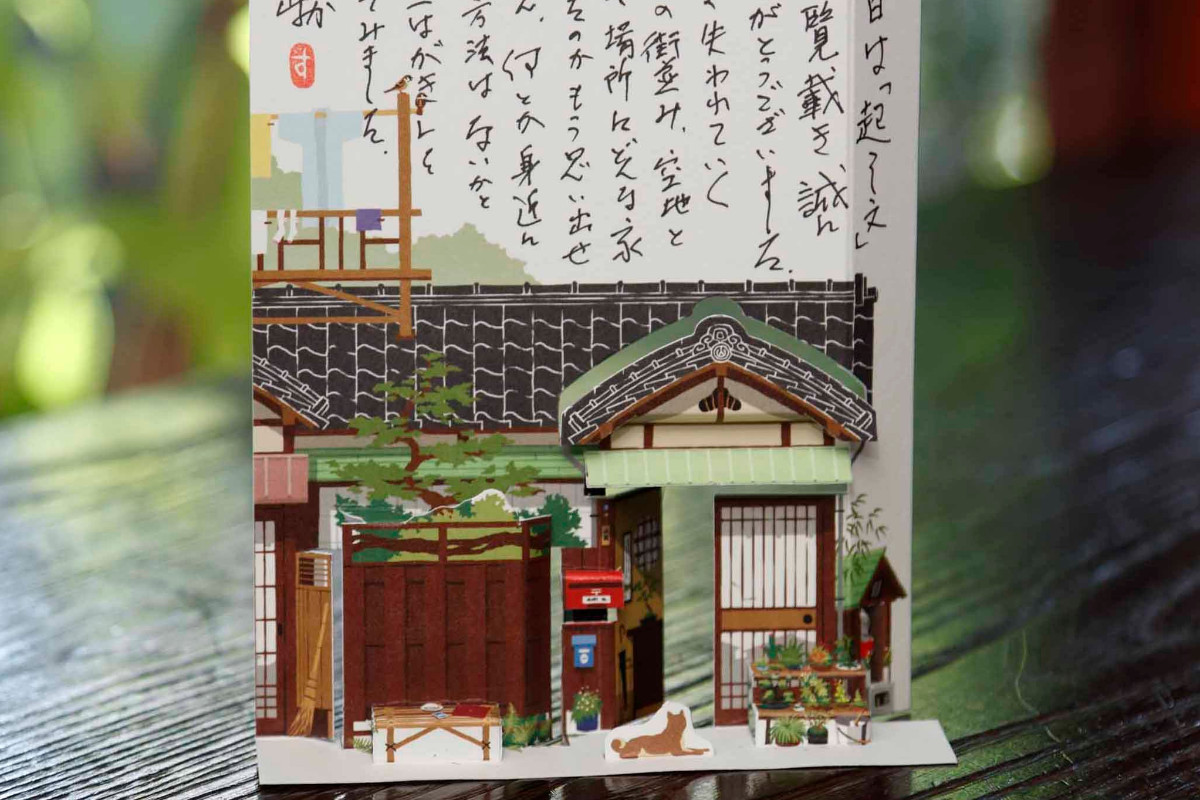 日は「起こし文」
覧載き、誠に
がとうございました。
失われていく
の街並み、空地と
場所にどんな家
たのかもう思い出せ
ん。何とか身近に
方法はないかと
はがき
てみました。
す